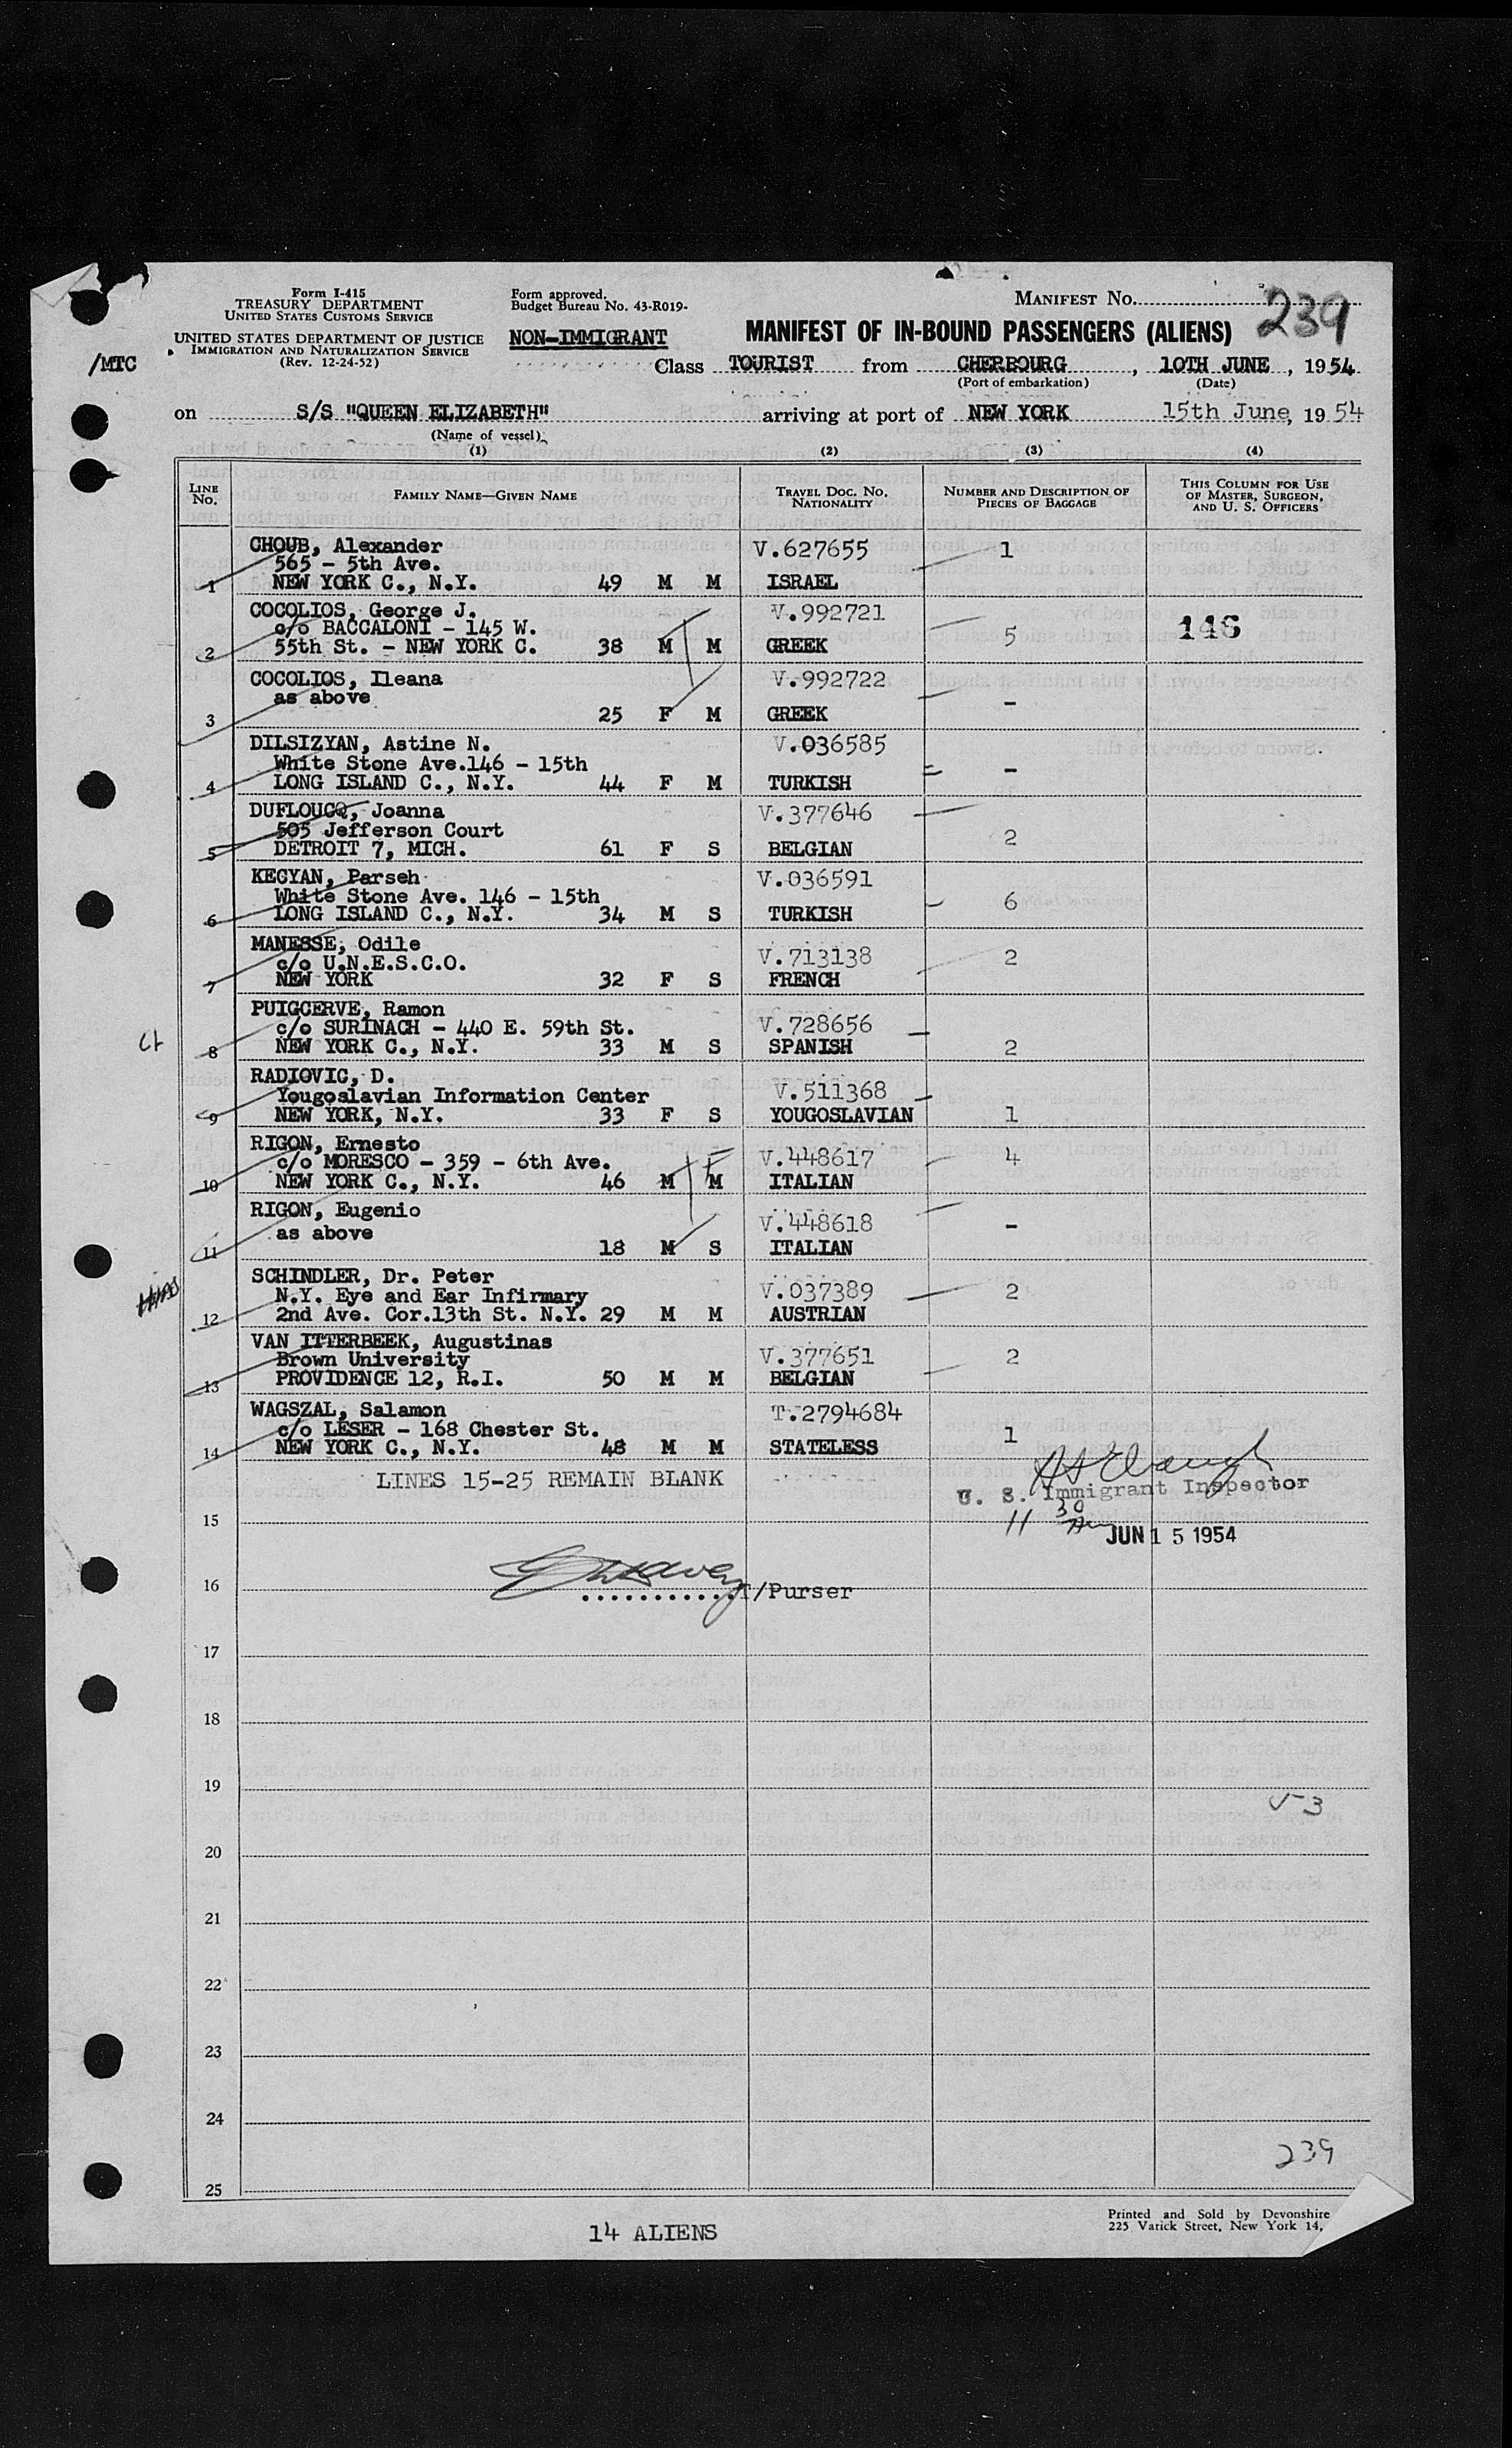 Form I-415
TREASURY DEPARTMENT
UNITED STATES CUSTOMS SERVICE
UNITED STATES DEPARTMENT OF JUSTICE
IMMIGRATION AND NATURALIZATION SERVICE
(Rev. 12-24-52)
/MTC
Form approved.
Budget Bureau No. 43-R019-
NON-IMMIGRANT
MANIFEST NO. 239
MANIFEST OF IN-BOUND PASSENGERS (ALIENS)
Class TOURIST from CHERBOURG, 10TH JUNE, 1954
(Port of embarkation) (Date)
on S/S "QUEEN ELIZABETH" arriving at port of NEW YORK 15th June, 1954
(Name of vessel)
(1) (2) (3) (4)
LINE NO. FAMILY NAME—GIVEN NAME TRAVEL DOC. NO. NATIONALITY NUMBER AND DESCRIPTION OF PIECES OF BAGGAGE THIS COLUMN FOR USE OF MASTER, SURGEON, AND U. S. OFFICERS
CHOUB, Alexander V.627655 1
565 - 5th Ave.
1 NEW YORK C., N.Y. 49 M M ISRAEL
COCOLIOS, George J. V.992721
c/o BACCALONI - 145 W. 5 146
2 55th St. - NEW YORK C. 38 M M GREEK
COCOLIOS, Ileana V.992722
as above -
3 25 F M GREEK
DILSIZYAN, Astine N. V.036585
White Stone Ave.146 - 15th -
4 LONG ISLAND C., N.Y. 44 F M TURKISH
DUFLOUCQ, Joanna V.377646
505 Jefferson Court 2
5 DETROIT 7, MICH. 61 F S BELGIAN
KEGYAN, Parseh V.036591
White Stone Ave. 146 - 15th 6
6 LONG ISLAND C., N.Y. 34 M S TURKISH
MANESSE, Odile V.713138 2
c/o U.N.E.S.C.O.
7 NEW YORK 32 F S FRENCH
PUIGCERVE, Ramon V.728656
c/o SURINACH - 440 E. 59th St.
8 NEW YORK C., N.Y. 33 M S SPANISH 2
RADIOVIC, D. V.511368
Yougoslavian Information Center
9 NEW YORK, N.Y. 33 F S YOUGOSLAVIAN 1
RIGON, Ernesto V.448617 4
c/o MORESCO - 359 - 6th Ave.
10 NEW YORK C., N.Y. 46 M M F ITALIAN
RIGON, Eugenio V.448618 -
as above
11 18 M S ITALIAN
SCHINDLER, Dr. Peter V.037389 2
N.Y. Eye and Ear Infirmary
12 2nd Ave. Cor.13th St. N.Y. 29 M M AUSTRIAN
VAN ITTERBEEK, Augustinas V.377651 2
Brown University
13 PROVIDENCE 12, R.I. 50 M M BELGIAN
WAGSZAL, Salamon T.2794684
c/o LESER - 168 Chester St. 1
14 NEW YORK C., N.Y. 48 M M STATELESS
LINES 15-25 REMAIN BLANK
U. S. Immigrant Inspector
11 30 Am JUN 15 1954
15
16 T/Purser
17
18
19
V-3
20
21
22
23
24
239
25
14 ALIENS
Printed and Sold by Devonshire
225 Varick Street, New York 14,